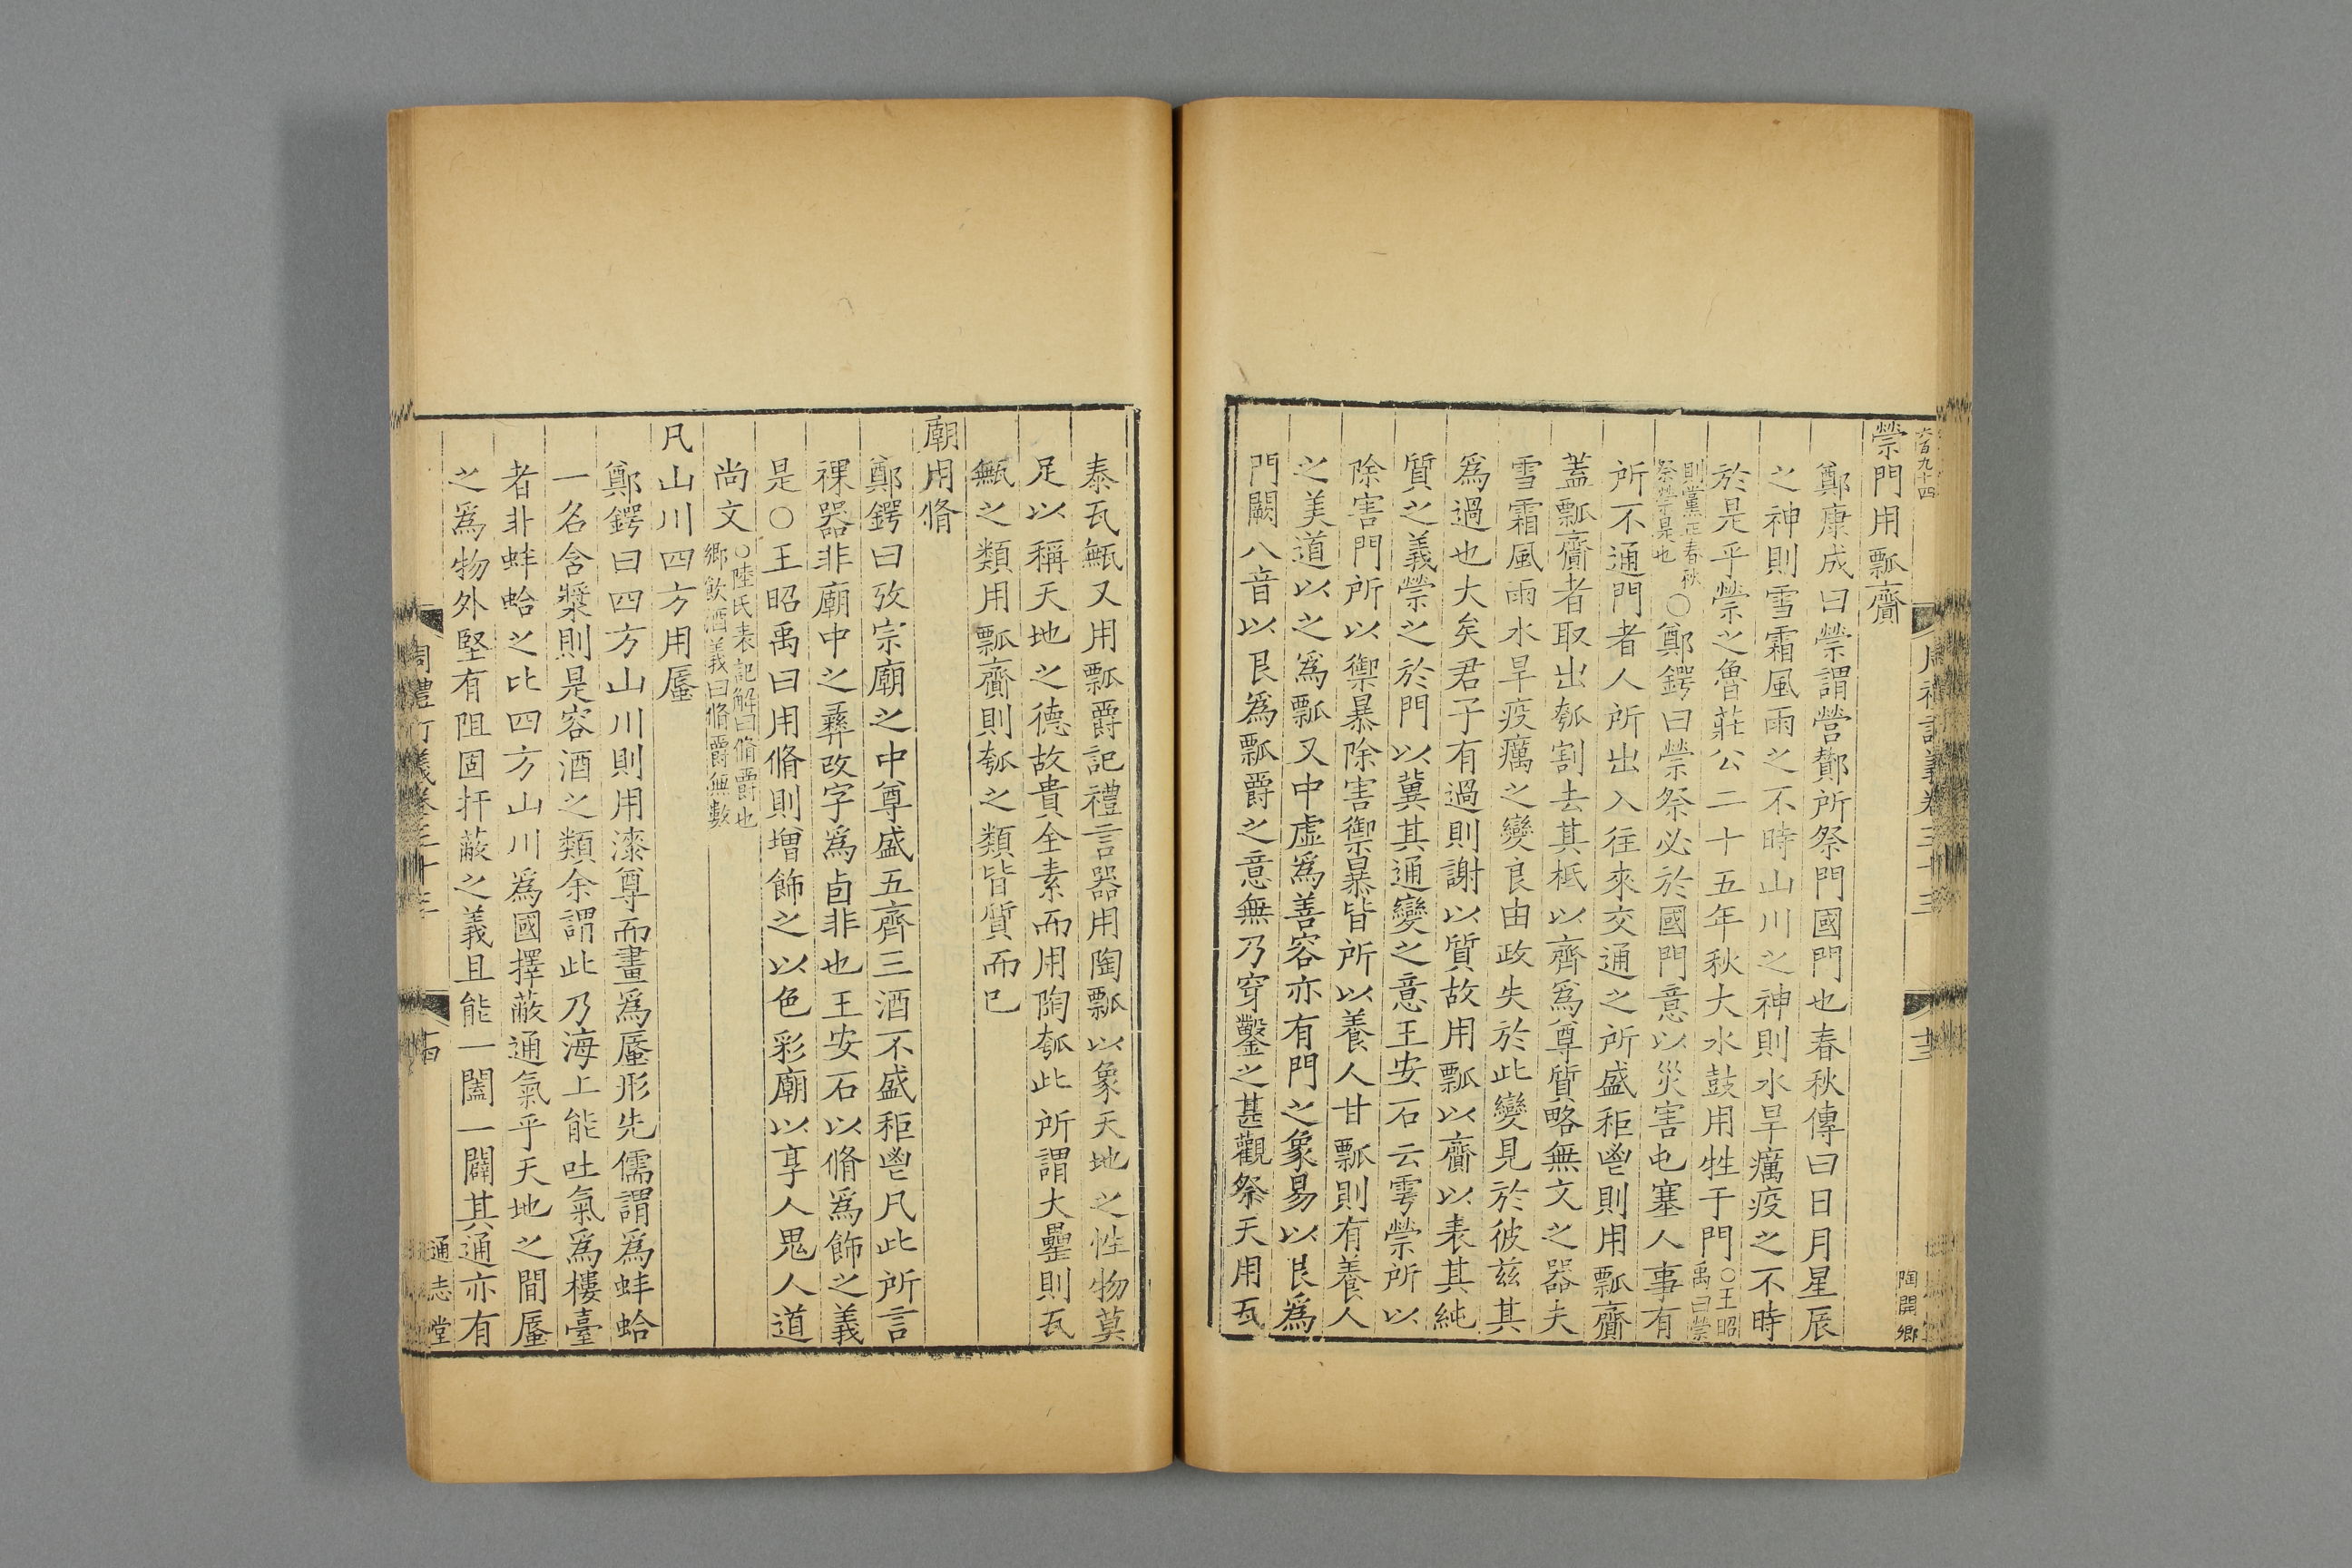 六百九十四
禜門用瓢齎
鄭康成曰禜謂營酇所祭門國門也春秋傳曰日月星辰
之神則雪霜風雨之不時山川之神則水旱癘疫之不時
於是乎禜之魯莊公二十五年秋大水鼓用牲于門○王昭禹曰禜
則黨正春秋祭禜是也○鄭鍔曰禜祭必於國門意以災害屯塞人事有
所不通門者人所出入往來交通之所盛秬鬯則用瓢齎
蓋瓢齎者取出瓠割去其柢以齊爲尊質略無文之器夫
雪霜風雨水旱疫癘之變良由政失於此變見於彼兹其
爲過也大矣君子有過則謝以質故用瓢以齎以表其純
質之義禜之於門以冀其通變之意王安石云雩禜所以
除害門所以禦暴除害禦暴皆所以養人甘瓢則有養人
之美道以之爲瓢又中虛爲善容亦有門之象易以艮爲
門闕八音以艮爲瓢爵之意無乃穿鑿之甚觀祭天用瓦
陶開鄉
泰瓦甒又用瓢爵記禮言器用陶瓢以象天地之性物莫
足以稱天地之德故貴全素而用陶瓠此所謂大罍則瓦
甒之類用瓢齎則瓠之類皆質而已
廟用脩
鄭鍔曰攷宗廟之中尊盛五齊三酒不盛秬鬯凡此所言
祼器非廟中之彝改字爲卣非也王安石以脩爲飾之義
是○王昭禹曰用脩則增飾之以色彩廟以享人鬼人道
尚文○陸氏表記解曰脩爵也鄉飲酒義曰脩爵無數
凡山川四方用蜃
鄭鍔曰四方山川則用漆尊而畫爲蜃形先儒謂爲蚌蛤
一名含漿則是容酒之類余謂此乃海上能吐氣爲樓臺
者非蚌蛤之比四方山川爲國擇蔽通氣乎天地之間蜃
之爲物外堅有阻固扞蔽之義且能一闔一闢其通亦有
通志堂